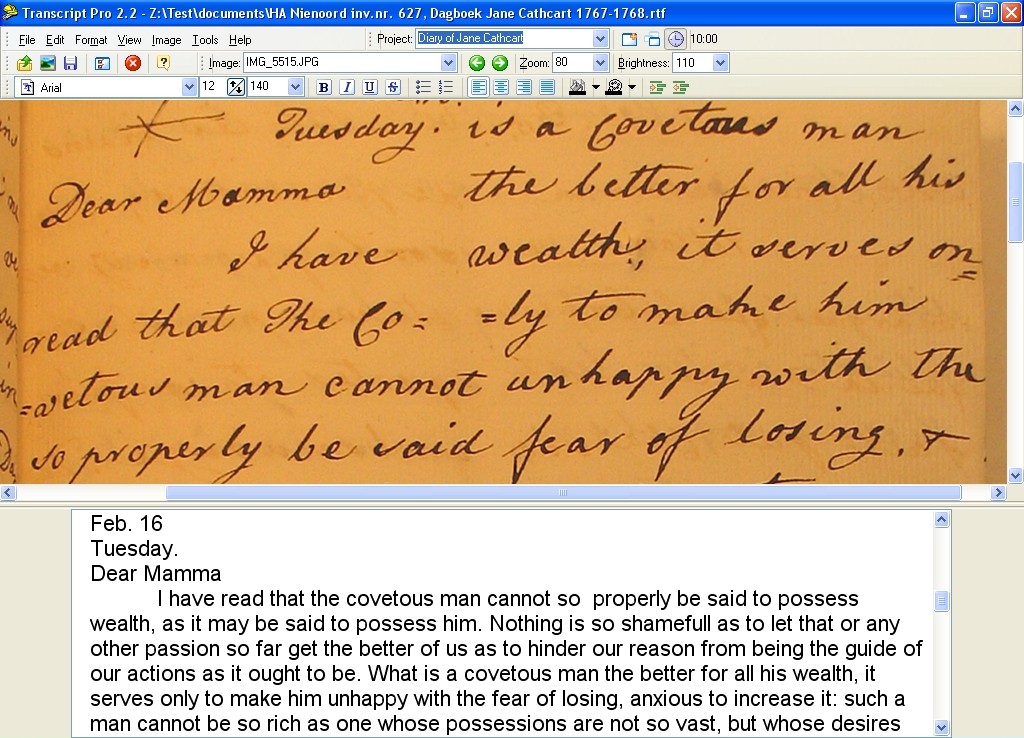 Transcript Pro 2.2 - Z:\Test\documents\HA Nienoord inv.nr. 627, Dagboek Jane Cathcart 1767-1768.rtf
File Edit Format View Image Tools Help
Project: Diary of Jane Cathcart
10:00
Image: IMG_5515.JPG
Zoom: 80
Brightness: 110
Arial 12 140 B I U S
Tuesday.
Dear Mamma
I have
read that The Co=
=vetous man cannot
so properly be said
is a Covetous man
the better for all his
wealth, it serves on
=ly to make him
unhappy with the
fear of losing, &
Feb. 16
Tuesday.
Dear Mamma
I have read that the covetous man cannot so properly be said to possess
wealth, as it may be said to possess him. Nothing is so shamefull as to let that or any
other passion so far get the better of us as to hinder our reason from being the guide of
our actions as it ought to be. What is a covetous man the better for all his wealth, it
serves only to make him unhappy with the fear of losing, anxious to increase it: such a
man cannot be so rich as one whose possessions are not so vast, but whose desires